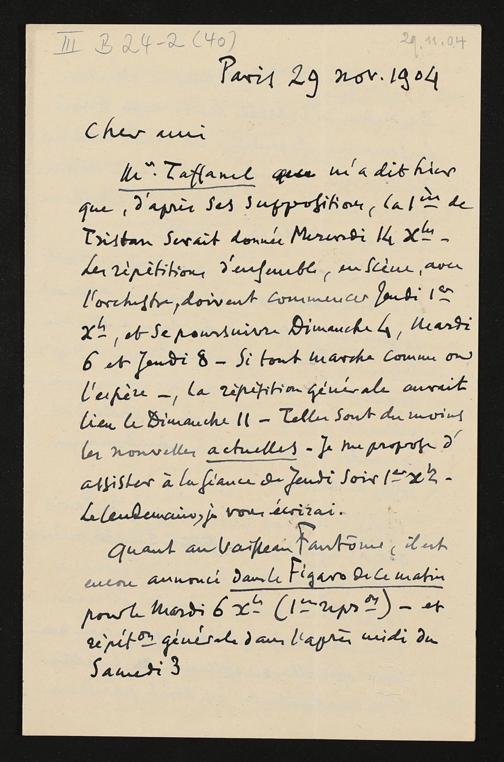 III B 24-2 (40)
29.11.04
Paris 29 nov. 1904
Cher ami
Mr. Taffanel que m'a dit hier
que, d'après ses suppositions, la 1ère de
Tristan serait donnée Mercredi 14 Xbre -
Les répétitions d'ensemble, en scène, avec
l'orchestre, doivent commencer Jeudi 1er
Xbre, et se poursuivre Dimanche 4, Mardi
6 et Jeudi 8 - Si tout marche comme on
l'espère -, la répétition générale aurait
lieu le Dimanche 11 - Telles sont du moins
les nouvelles actuelles - Je me propose d'
assister à la séance de Jeudi soir 1er Xbre -
Le lendemain, je vous écrirai.
Quant au Vaisseau Fantôme, il est
encore annoncé dans le Figaro de ce matin
pour le Mardi 6 Xbre (1ère repron) - et
répéton générale dans l'après midi du
Samedi 3